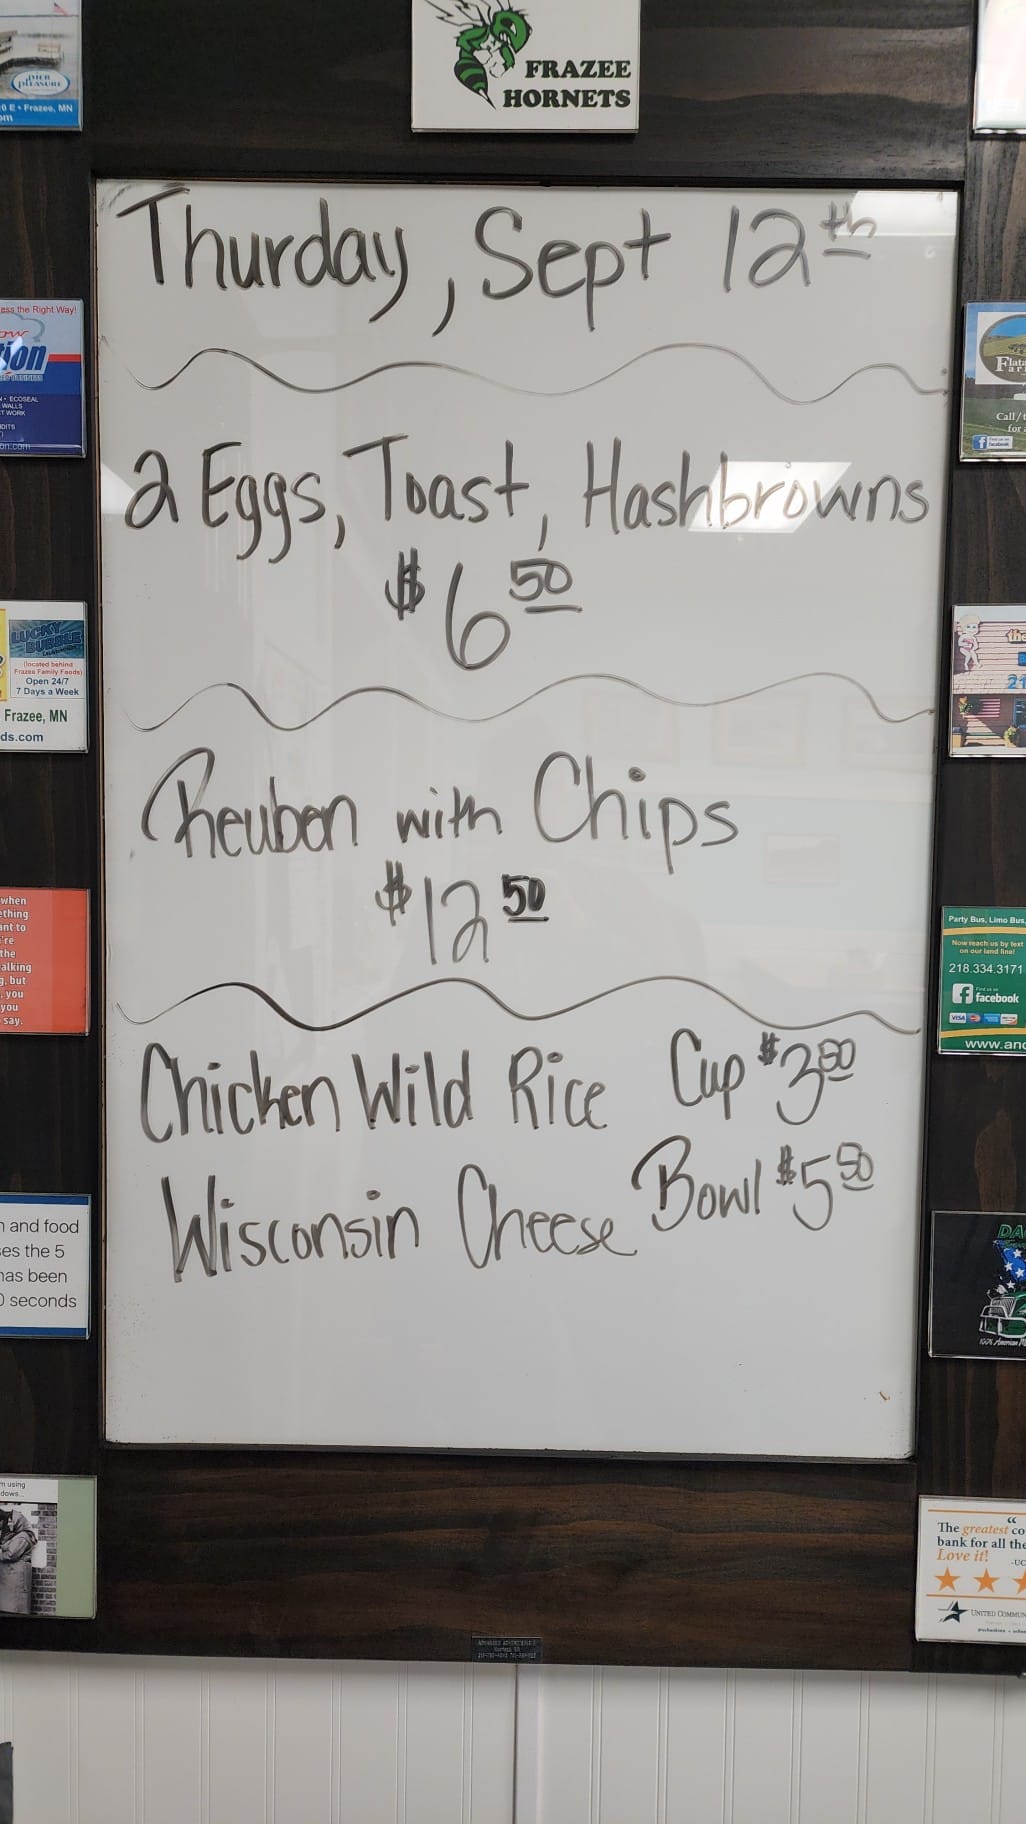 FRAZEE
HORNETS
PIER
PLEASURE
E • Frazee, MN
Thurday, Sept 12th
2 Eggs, Toast, Hashbrowns
$6 50
Reuben with Chips
$12 50
Chicken Wild Rice Cup $3 50
Wisconsin Cheese Bowl $5 50
ess the Right Way!
ECOSEAL
WALLS
T WORK
LUCKY
BUBBLE
(located behind
Frazee Family Foods)
Open 24/7
7 Days a Week
Frazee, MN
ds.com
when
ething
ant to
're
the
alking
g, but
, you
you
say.
and food
es the 5
has been
0 seconds
m using
dows...
Call / t
for a
Find us on
facebook
the
21
Party Bus, Limo Bus,
Now reach us by text
on our land line!
218.334.3171
Find us on
facebook
VISA
www.and
DA
“
The greatest co
bank for all the
Love it!
-UC
UNITED COMMUN